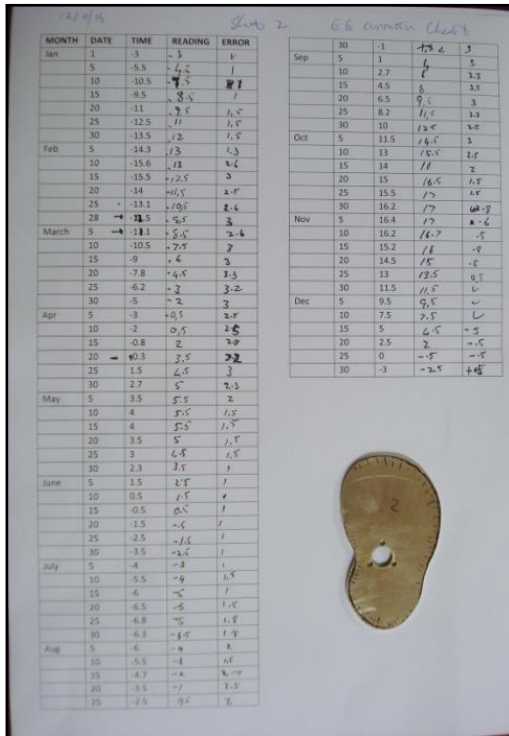 Sheet 2
MONTH DATE TIME READING ERROR
Jan 1 -3 -3
5 -5.5 -4.5 1
10 -10.5
15 -9.5 -8.5 1
20 -11 -9.5 1,5
25 -12.5 -11 1,5
30 -13.5 -12 1,5
Feb 5 -14.3 -13 1.3
10 -15.6 -13 2.6
15 -15.5 -12.5 3
20 -14 -11,5 2.5
25 -13.1 -10,5 2.6
28 -9,5 3
March 5 -8.5 2.6
10 -10.5 -7.5 3
15 -9 -6 3
20 -7.8 -4.5 3.3
25 -6.2 -3 3.2
30 -5 -2 3
Apr 5 -3 -0,5 2.5
10 -2 0,5 2.5
15 -0.8 2 2.8
20 3,5
25 1.5 4.5 3
30 2.7 5 2.3
May 5 3.5 5.5 2
10 4 5.5 1,5
15 4 5.5 1.5
20 3.5 5 1.5
25 3 4.5 1,5
30 2.3 3.5 1
June 5 1.5 2.5 1
10 0.5 1.5
15 -0.5 0.5 1
20 -1.5 -.5 1
25 -2.5 -1.5 1
30 -3.5 -2.5 1
July 5 -4 -3 1
10 -5.5 -4 1.5
15 -6 -5 1
20 -6.5 -5 1.5
25 -6.8 -5 1.8
30 -6.3 -4.5 1.8
Aug 5 -6 -4 2
10 -5.5
15 -4.7 -2 2.7
20 -3.5
25 -2.5
30 -1
Sep 5 1
10 2.7
15 4.5 8 3.5
20 6.5 9,5 3
25 8.2 11,5 3.3
30 10 12.5 2.5
Oct 5 11.5 14.5 3
10 13 15.5 2.5
15 14 16 2
20 15 16.5 1.5
25 15.5 17 1.5
30 16.2 17
Nov 5 16.4 17 .6
10 16.2 16.7 .5
15 15.2 16 .8
20 14.5 15 .5
25 13 13.5 0,5
30 11.5 11,5
Dec 5 9.5 9,5
10 7.5 7.5
15 5 4.5 -5
20 2.5 2 -.5
25 0 -.5 -.5
30 -3 -2.5
2